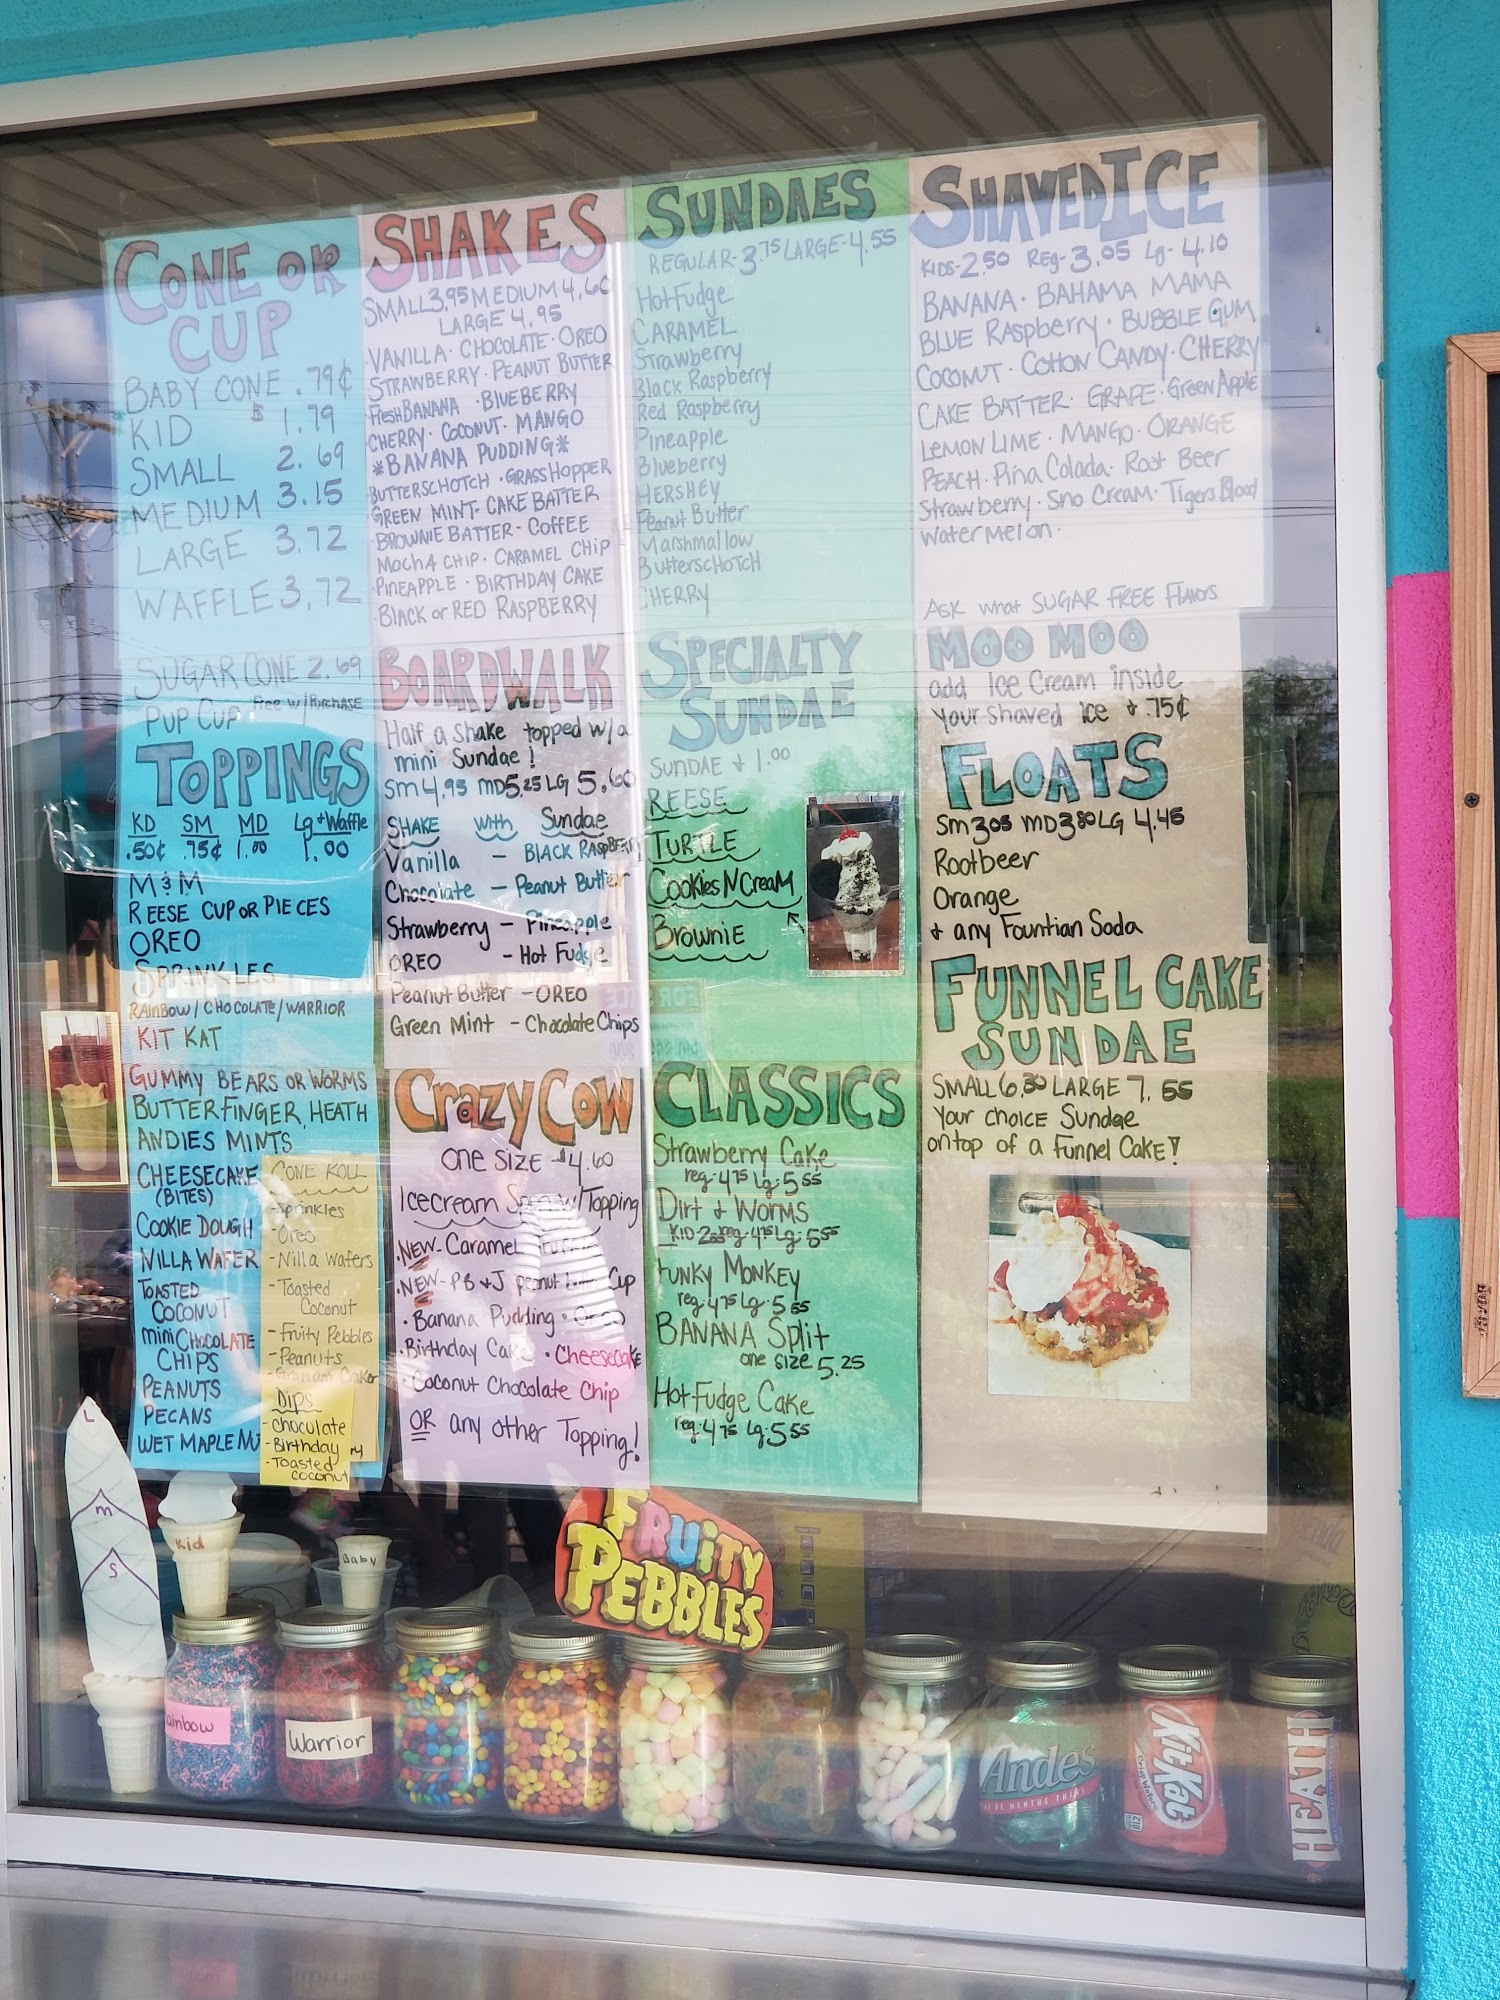 CONE OR
CUP
BABY CONE .79¢
KID $1.79
SMALL 2.69
MEDIUM 3.15
LARGE 3.72
WAFFLE 3.72
SUGAR CONE 2.69
PUP CUP Free w/ PURCHASE
TOPPINGS
KD SM MD Lg+Waffle
.50¢ .75¢ 1.00 1.00
M&M
REESE CUP OR PIECES
OREO
SPRINKLES
RAINBOW/CHOCOLATE/WARRIOR
KIT KAT
GUMMY BEARS OR WORMS
BUTTERFINGER, HEATH
ANDIES MINTS
CHEESECAKE
(BITES)
COOKIE DOUGH
NILLA WAFER
TOASTED
COCONUT
mini CHOCOLATE
CHIPS
PEANUTS
PECANS
WET MAPLE
CONE ROLL
-Sprinkles
-Oreo
-Nilla Wafers
-Toasted
Coconut
-Fruity Pebbles
-Peanuts
-Graham
Dips
-Chocolate
-Birthday
-Toasted
coconut
SHAKES
SMALL 3.95 MEDIUM 4.60
LARGE 4.95
·VANILLA· CHOCOLATE· OREO
STRAWBERRY· PEANUT BUTTER
·FreshBANANA ·BLUEBERRY
·CHERRY· COCONUT· MANGO
*BANANA PUDDING*
·BUTTERSCHOTCH ·GRASSHOPPER
GREEN MINT· CAKE BATTER
·BROWNIE BATTER- COFFEE
MOCHA CHIP· CARAMEL CHIP
·PINEAPPLE · BIRTHDAY CAKE
·BLACK or RED RASPBERRY
BOARDWALK
Half a Shake topped w/a
mini Sundae!
Sm 4.95 MD 5.25 LG 5.60
SHAKE with Sundae
Vanilla - BLACK RASPBERRY
Chocolate - Peanut Butter
Strawberry - Pineapple
OREO - Hot Fudge
Peanut Butter - OREO
Green Mint - Chocolate Chips
CRAZY COW
ONE SIZE $4.60
Icecream w/Topping
·NEW- Caramel
·NEW- PB+J peanut butter Cup
·Banana Pudding · Oreo
·Birthday Cake · Cheesecake
·Coconut Chocolate Chip
OR any other Topping!
SUNDAES
REGULAR- 3.75 LARGE- 4.55
Hot Fudge
CARAMEL
Strawberry
Black Raspberry
Red Raspberry
Pineapple
Blueberry
HERSHEY
Peanut Butter
Marshmallow
ButterscHOTCH
CHERRY
SPECIALTY
SUNDAE
SUNDAE + 1.00
REESE
TURTLE
COOKIES N CREAM
BROWNIE
CLASSICS
Strawberry Cake
reg. 4.75 Lg. 5.55
Dirt + Worms
KID- reg- 4.75 Lg. 5.55
FUNKY MONKEY
reg. 4.75 Lg. 5.55
BANANA Split
one size 5.25
Hot Fudge Cake
reg. 4.75 Lg. 5.55
SHAVED ICE
KIDS- 2.50 Reg- 3.05 Lg- 4.10
BANANA· BAHAMA MAMA
BLUE Raspberry· BUBBLE GUM
COCONUT· COTTON CANDY· CHERRY
CAKE BATTER· GRAPE· Green Apple
LEMON LIME· MANGO· ORANGE
PEACH· Pina Colada· Root Beer
Strawberry· Sno Cream· Tigers Blood
Watermelon·
Ask what SUGAR FREE Flavors
MOO MOO
add Ice Cream inside
Your Shaved Ice + .75¢
FLOATS
Sm 3.05 MD 3.80 LG 4.45
Rootbeer
Orange
+ any Fountian Soda
FUNNEL CAKE
SUNDAE
SMALL 6.30 LARGE 7.55
Your CHOICE Sundae
on top of a Funnel Cake!
L
m
S
Kid
Baby
FRUITY
PEBBLES
Rainbow
Warrior
Andes
KitKat
HEATH